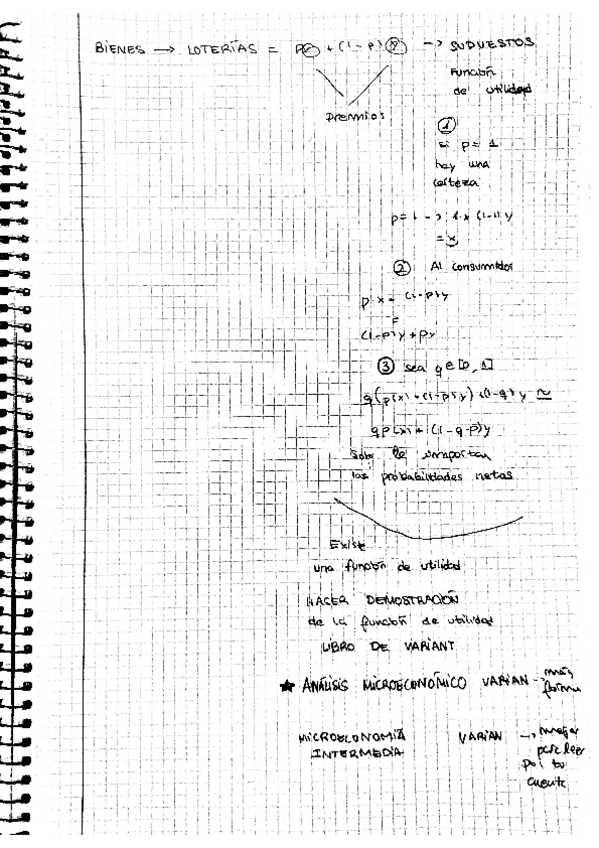 BIENES → LOTERÍAS = px + (1-p)y → SUPUESTOS
Función
de utilidad
Premios
①
si p = 1
hay una
certeza
p=1 → 1·x (1-1)y
= x
② Al consumidor
p·x + (1-p)y
(1-p)y + px
③ sea q ∈ [0,1]
q(p(x)+(1-p)y)+(1-q)y ~
qp(x)+(1-q·p)y
Solo le importan
las probabilidades netas
Existe
una función de utilidad
HACER DEMOSTRACIÓN
de la función de utilidad
LIBRO DE VARIANT
★ ANÁLISIS MICROECONÓMICO VARIAN → más
MICROECONOMÍA VARIAN → mejor
INTERMEDIA para leer
por tu
cuenta